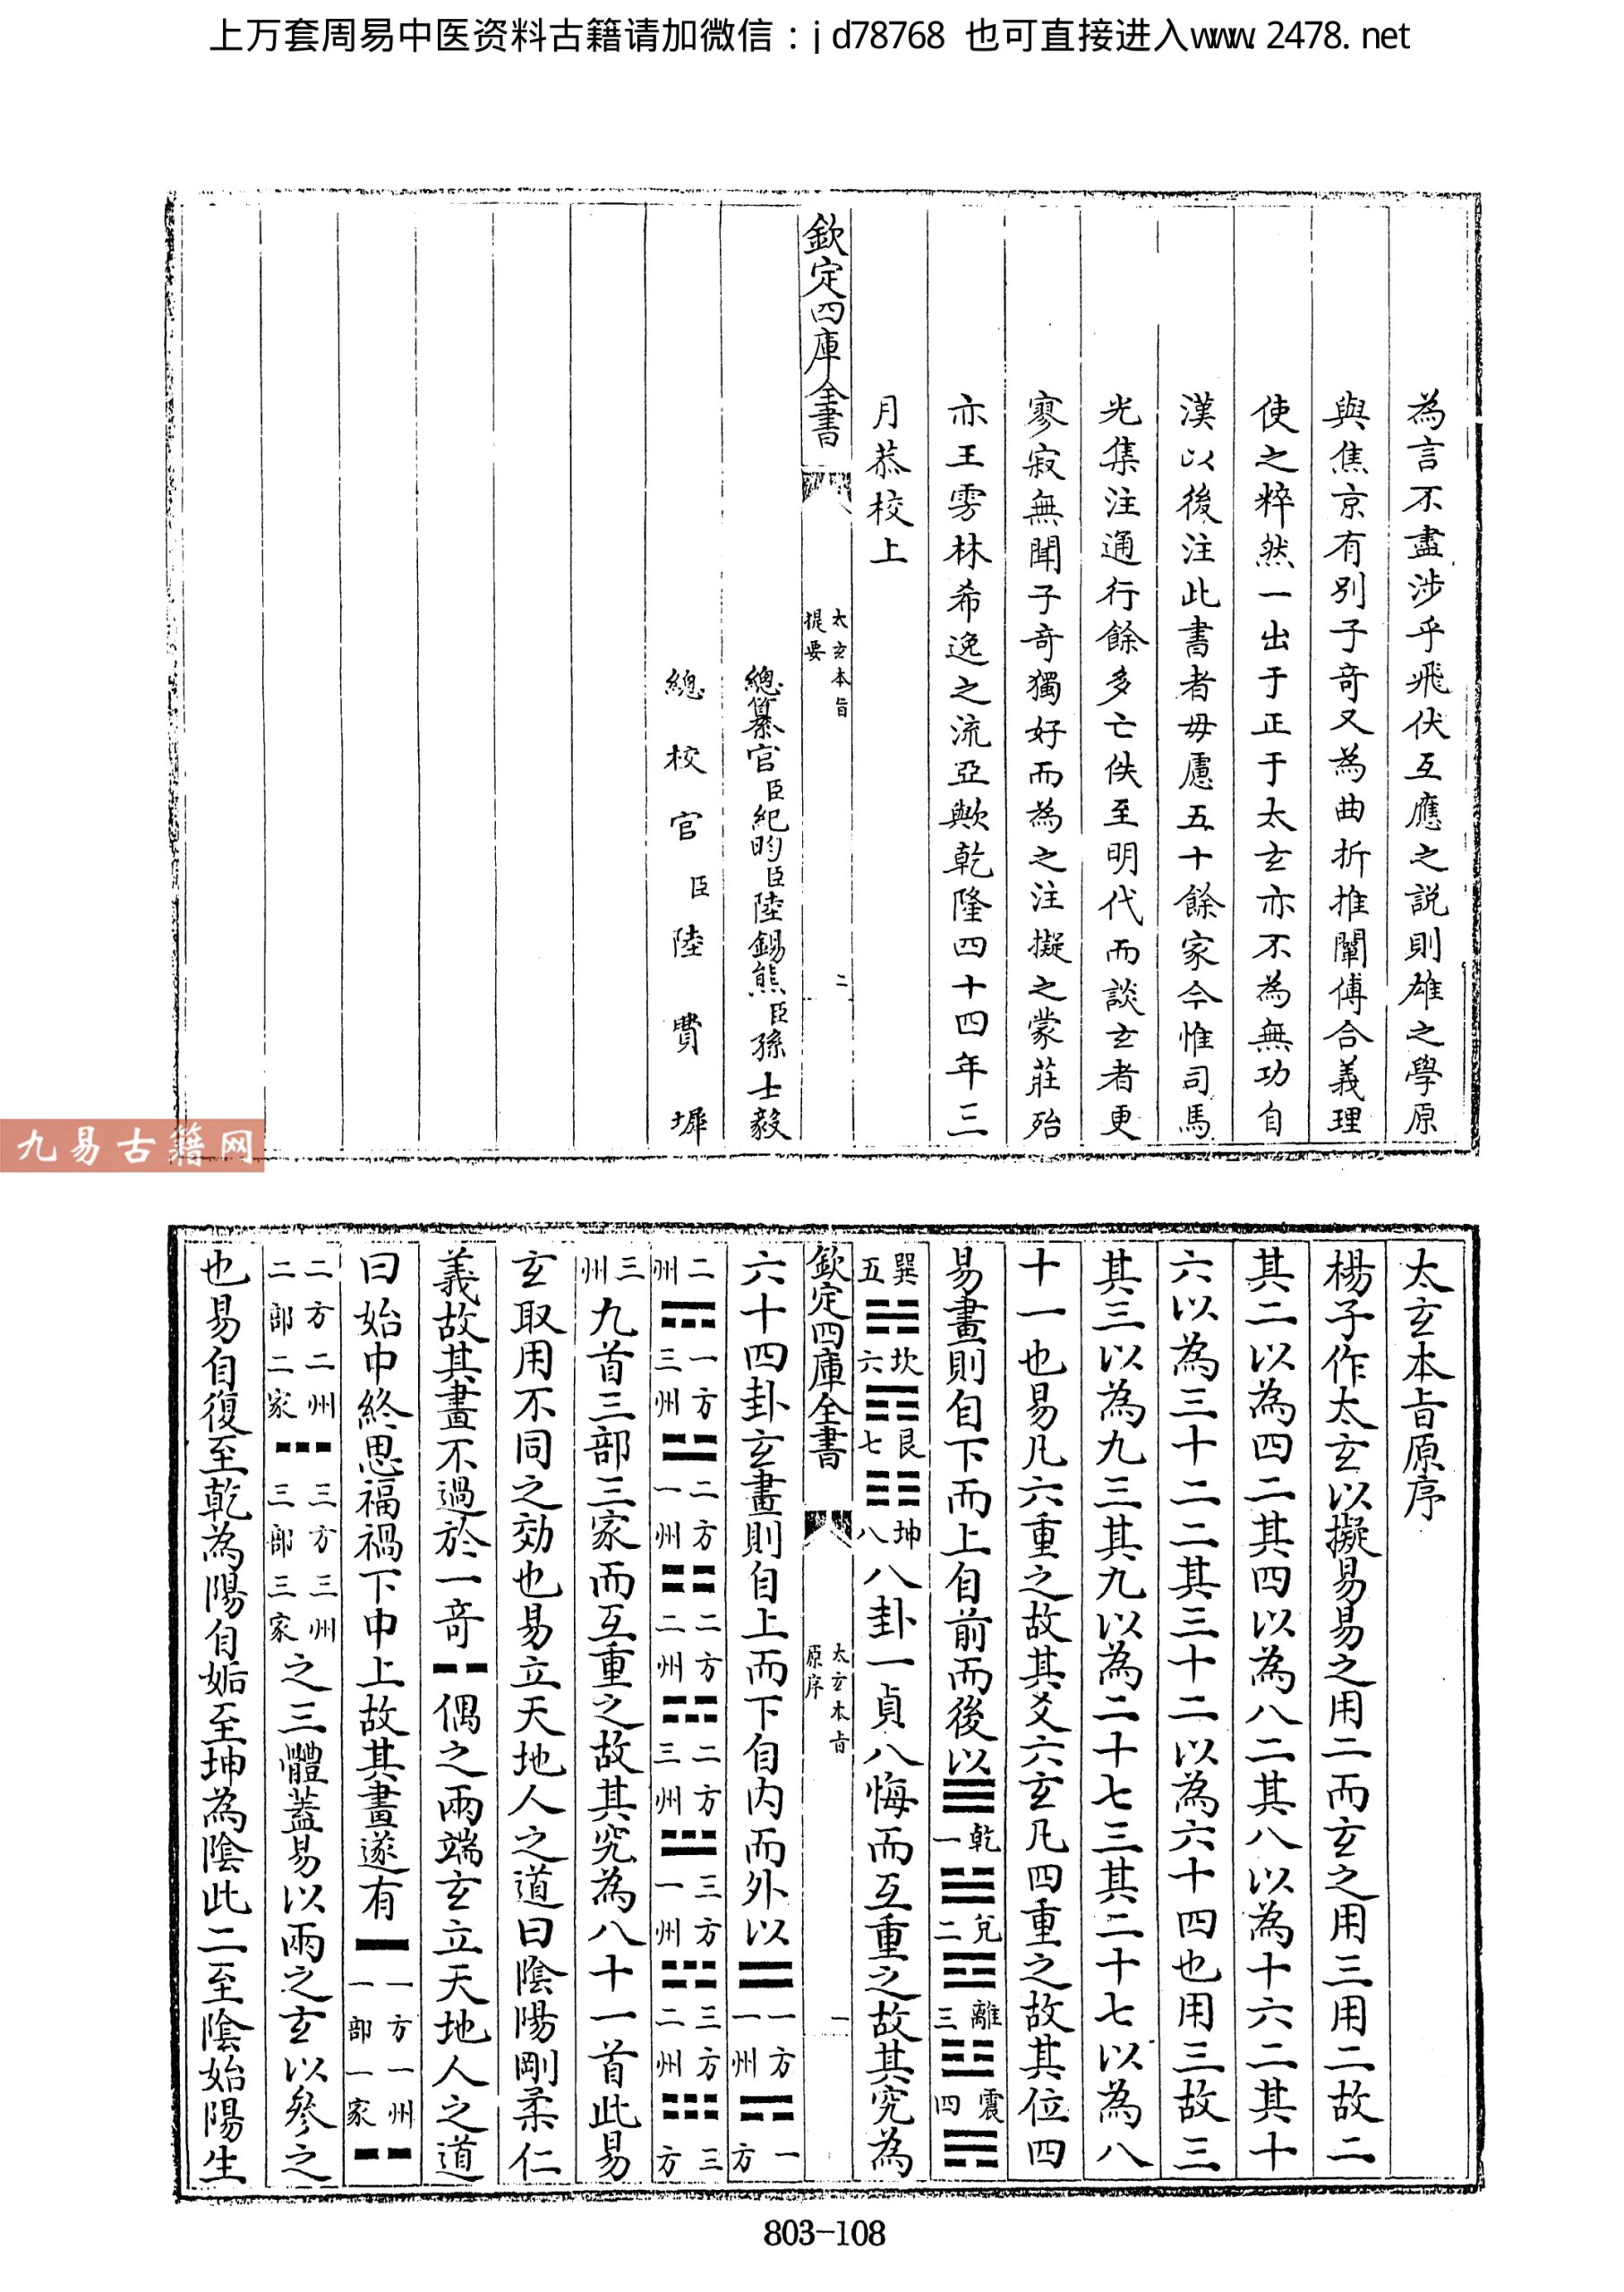 上万套周易中医资料古籍请加微信：jd78768 也可直接进入www.2478.net
為言不盡涉乎飛伏互應之説則雄之學原
與焦京有別子奇又為曲折推闡傅合義理
使之粹然一出于正于太玄亦不為無功自
漢以後注此書者毋慮五十餘家今惟司馬
光集注通行餘多亡佚至明代而談玄者更
寥寂無聞子奇獨好而為之注擬之蒙莊殆
亦王雱林希逸之流亞歟乾隆四十四年三
月恭校上
欽定四庫全書
太玄本旨
提要
二
總纂官臣紀昀臣陸錫熊臣孫士毅
總校官臣陸費墀
九易古籍网
太玄本旨原序
楊子作太玄以擬易易之用二而玄之用三用二故二
其二以為四二其四以為八二其八以為十六二其十
六以為三十二二其三十二以為六十四也用三故三
其三以為九三其九以為二十七三其二十七以為八
十一也易凡六重之故其爻六玄凡四重之故其位四
易畫則自下而上自前而後以☰乾一☱兌二☲離三☳震四☴
巽五☵坎六☶艮七☷坤八八卦一貞八悔而互重之故其究為
欽定四庫全書
太玄本旨
原序
一
六十四卦玄畫則自上而下自内而外以⚌一方一州⚍一方
二州一方三州二方一州二方二州二方三州三方一州三方二州三方
三州九首三部三家而互重之故其究為八十一首此易
玄取用不同之効也易立天地人之道曰陰陽剛柔仁
義故其畫不過於一奇⚋偶之兩端玄立天地人之道
曰始中終思福禍下中上故其畫遂有⚊一方一州一部一家⚋
二方二州二部二家𝌀三方三州三部三家之三體蓋易以兩之玄以參之
也易自復至乾為陽自姤至坤為陰此二至陰始陽生
803-108